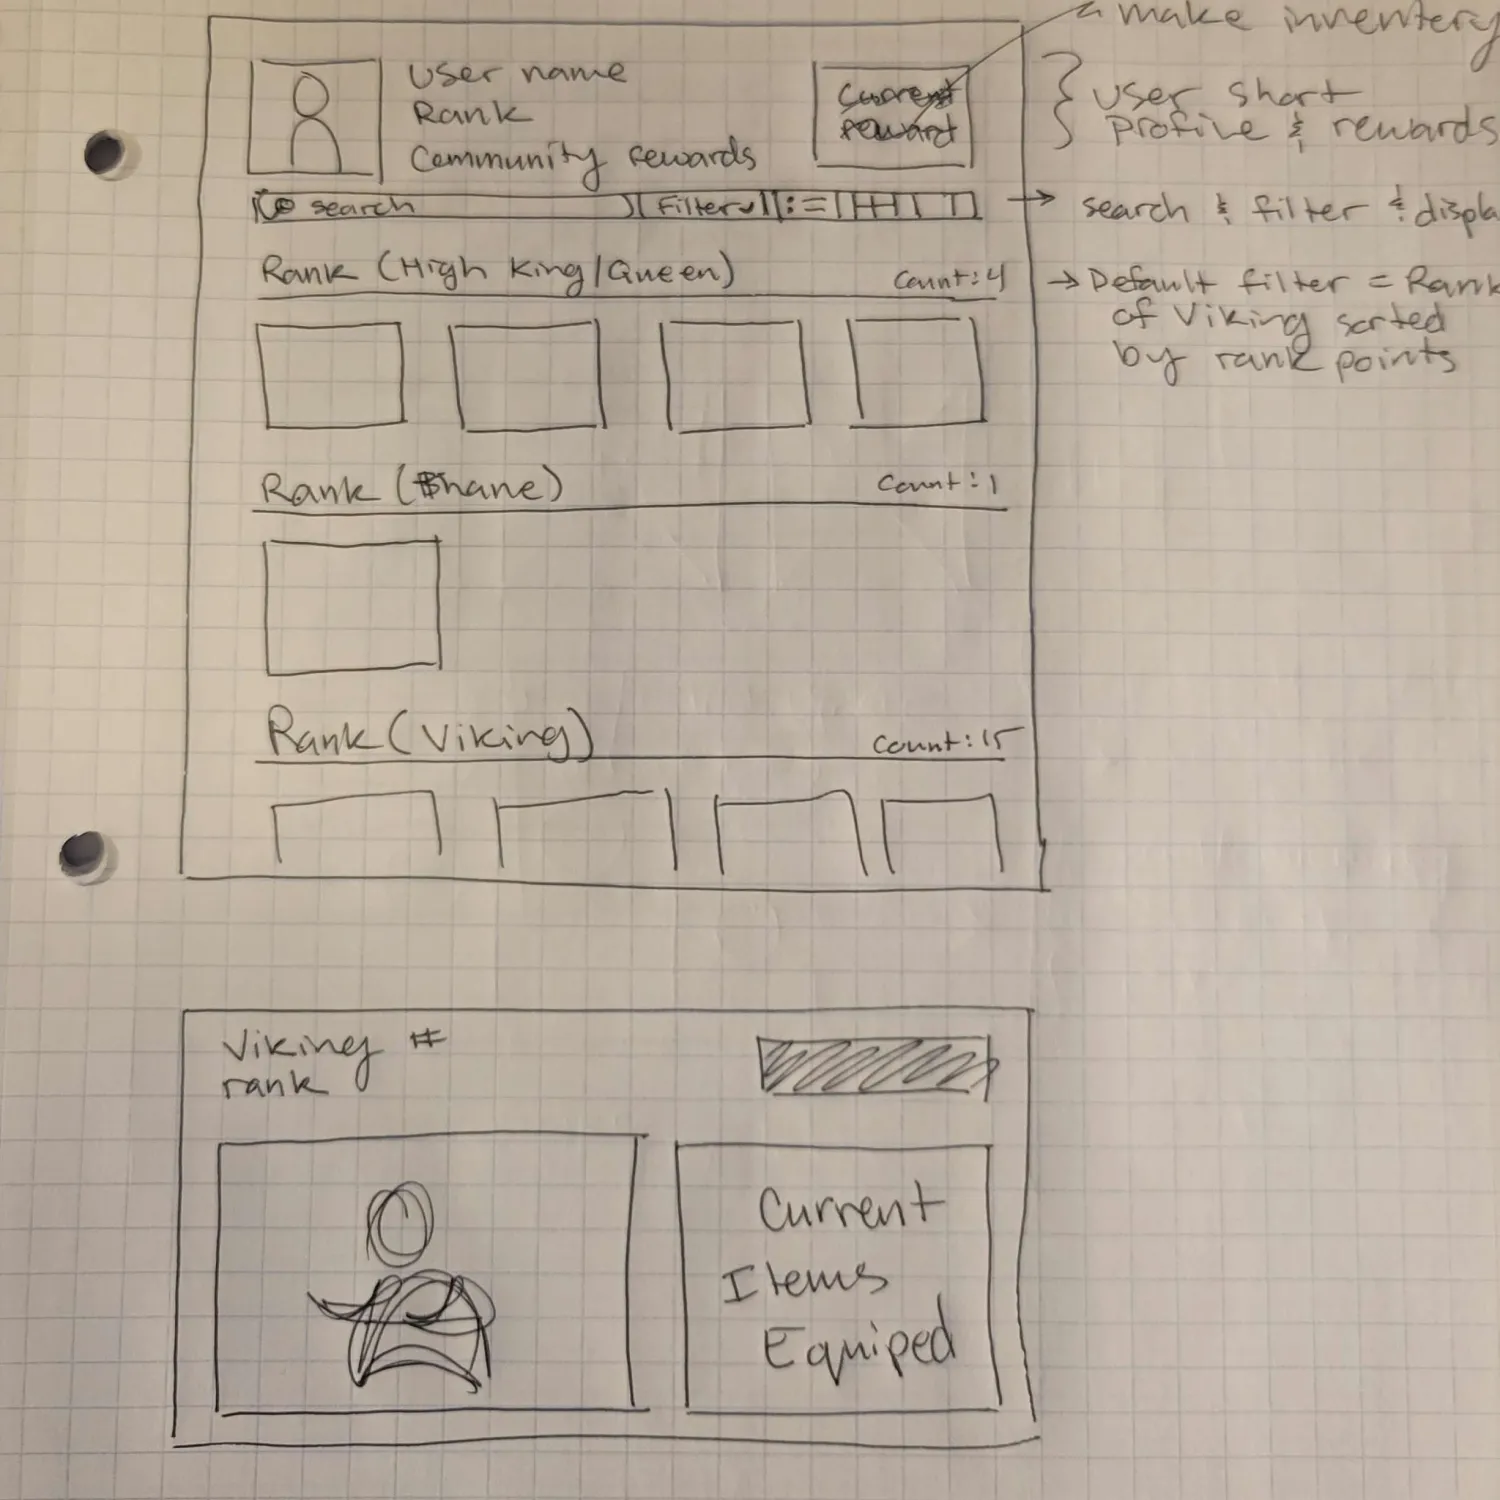 make inventery
User name
Rank
Community rewards
Current
reward
User short
profile & rewards
search
Filter
search & filter & displa
Rank (High King/Queen)
Count: 4
Default filter = Rank
of Viking sorted
by rank points
Rank (Thane)
Count: 1
Rank (Viking)
Count: 15
Viking #
rank
Current
Items
Equiped